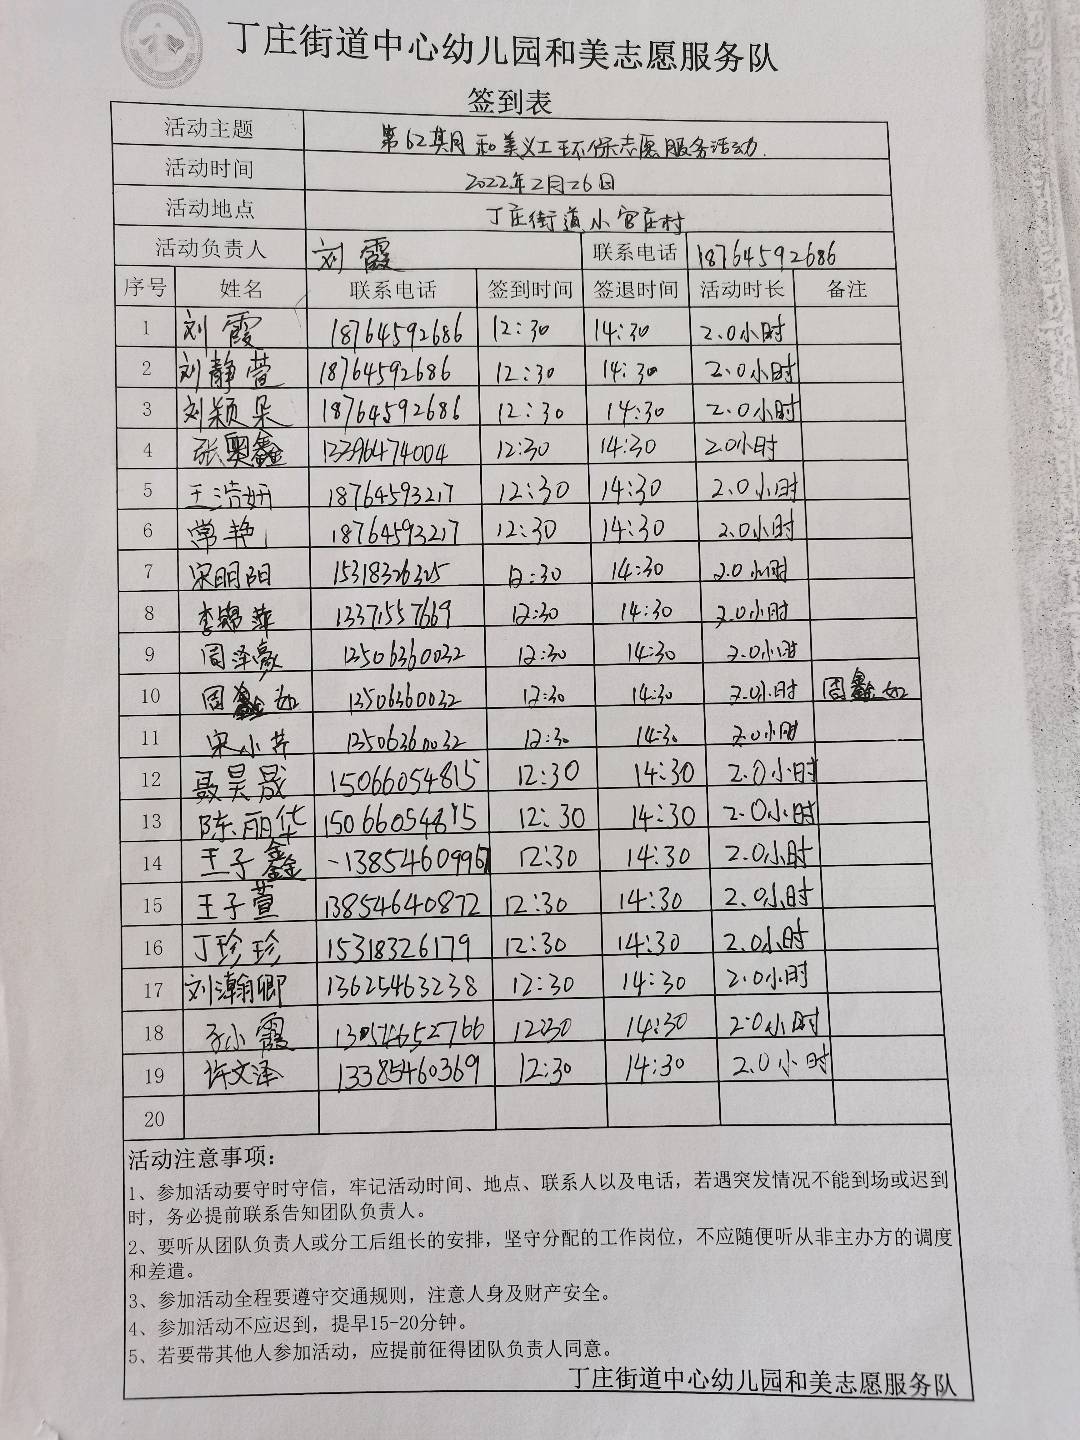 丁庄街道中心幼儿园和美志愿服务队
签到表
活动主题 第62期和美义工环保志愿服务活动.
活动时间 2022年2月26日
活动地点 丁庄街道小官庄村
活动负责人 刘霞 联系电话 18764592686
序号 姓名 联系电话 签到时间 签退时间 活动时长 备注
1 刘霞 18764592686 12:30 14:30 2.0小时
2 刘静萱 18764592686 12:30 14:30 2.0小时
3 刘颖朵 18764592686 12:30 14:30 2.0小时
4 张奥鑫 13396474004 12:30 14:30 2.0小时
5 王浩妍 18764593217 12:30 14:30 2.0小时
6 常艳 18764593217 12:30 14:30 2.0小时
7 宋明阳 15318326325 12:30 14:30 2.0小时
8 李锦萍 13371557669 12:30 14:30 2.0小时
9 周泽豪 13506360032 12:30 14:30 2.0小时
10 周鑫如 13506360032 12:30 14:30 2.0小时 周鑫如
11 宋小芹 13506360032 12:30 14:30 2.0小时
12 聂昊晟 15066054815 12:30 14:30 2.0小时
13 陈丽华 15066054815 12:30 14:30 2.0小时
14 王子鑫 13854609967 12:30 14:30 2.0小时
15 王子萱 13854640872 12:30 14:30 2.0小时
16 丁珍珍 15318326179 12:30 14:30 2.0小时
17 刘瀚卿 13625463238 12:30 14:30 2.0小时
18 小霞 13054652766 12:30 14:30 2.0小时
19 许文泽 13385460369 12:30 14:30 2.0小时
20
活动注意事项：
1、参加活动要守时守信，牢记活动时间、地点、联系人以及电话，若遇突发情况不能到场或迟到
时，务必提前联系告知团队负责人。
2、要听从团队负责人或分工后组长的安排，坚守分配的工作岗位，不应随便听从非主办方的调度
和差遣。
3、参加活动全程要遵守交通规则，注意人身及财产安全。
4、参加活动不应迟到，提早15-20分钟。
5、若要带其他人参加活动，应提前征得团队负责人同意。
丁庄街道中心幼儿园和美志愿服务队